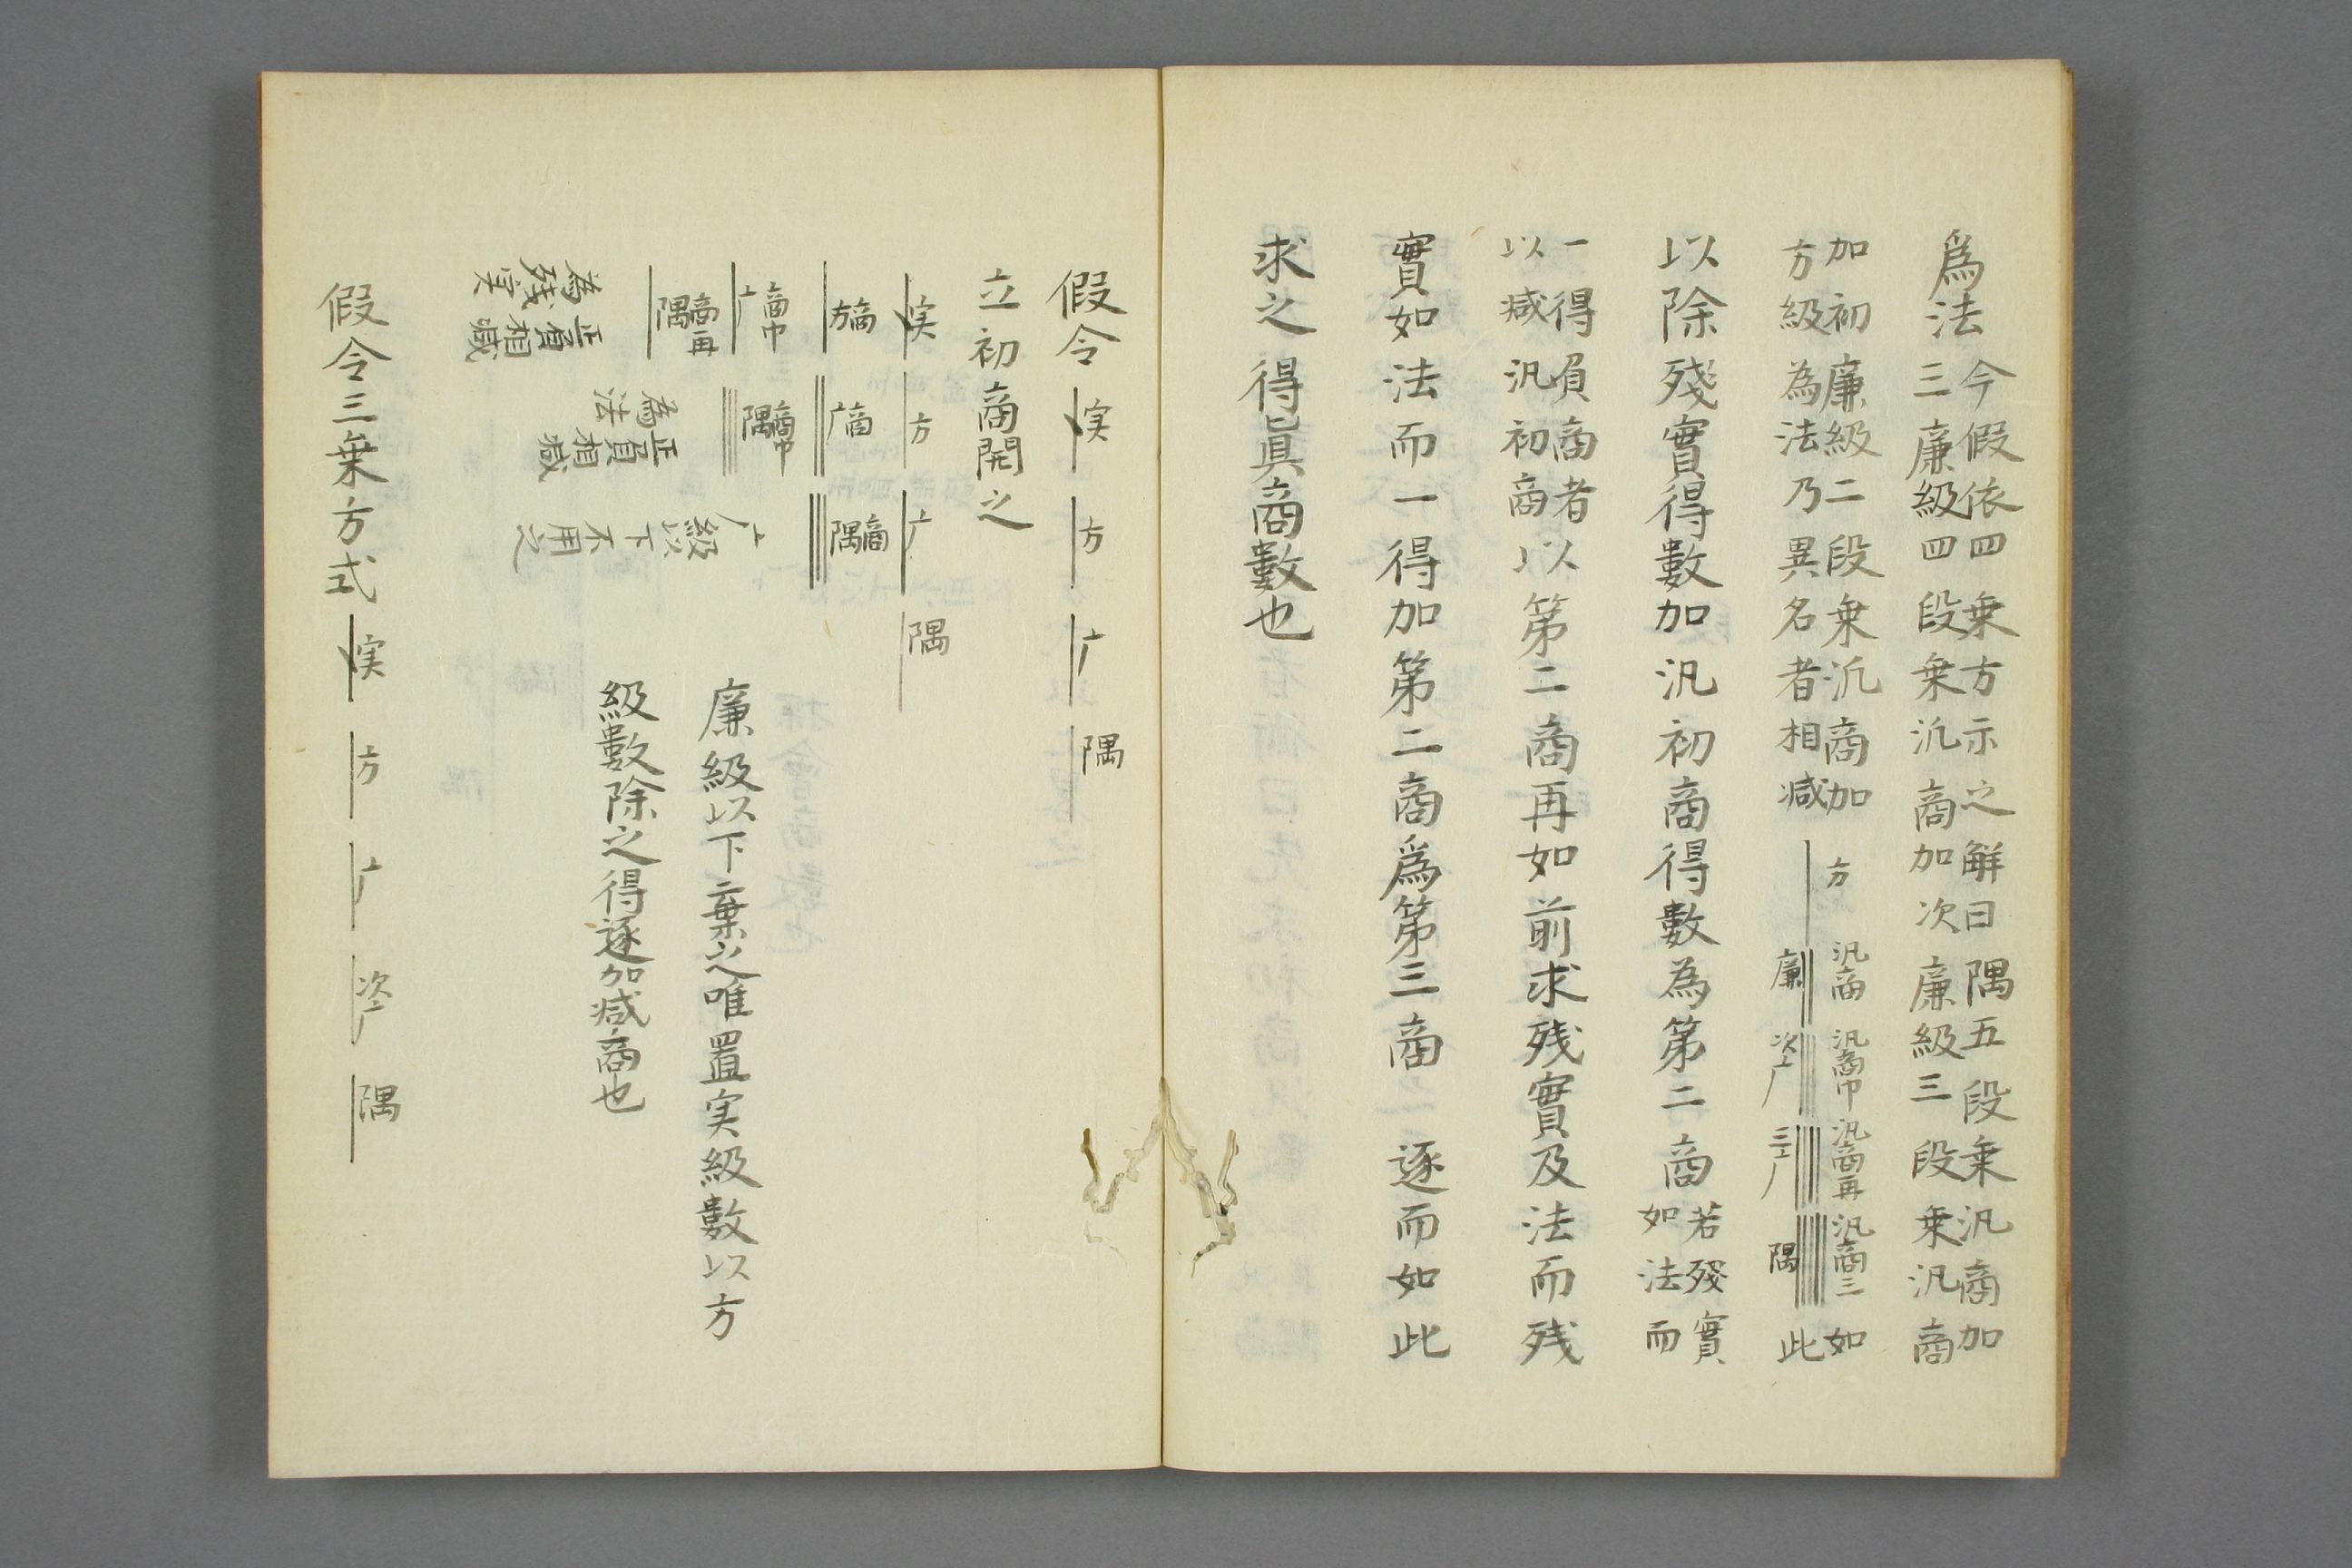 爲法
今假依四乗方示之解曰隅五段乗汎商加
三廉級四段乗汎商加次廉級三段乗汎商
加初廉級二段乗汎商加
方級為法乃異名者相减
方 汎商 汎商巾 汎商再 汎商三
廉 次广 三广 隅
如
此
以除殘實得數加汎初商得數為第二商
若殘實
如法而
一得負商者
以减汎初商
以第二商再如前求残實及法而残
實如法而一得加第二商爲第三商 逐而如此
求之得眞商數也
假令 実 方 广 隅
立初商開之
実 方 广 隅
商方 商广 商隅
商巾广 商巾隅
商再隅
正負相减
為残実
正負相减
為法
广級以下不用之
廉級以下棄之唯置実級數以方
級數除之得逐加减商也
假令三乗方式 実 方 广 次广 隅